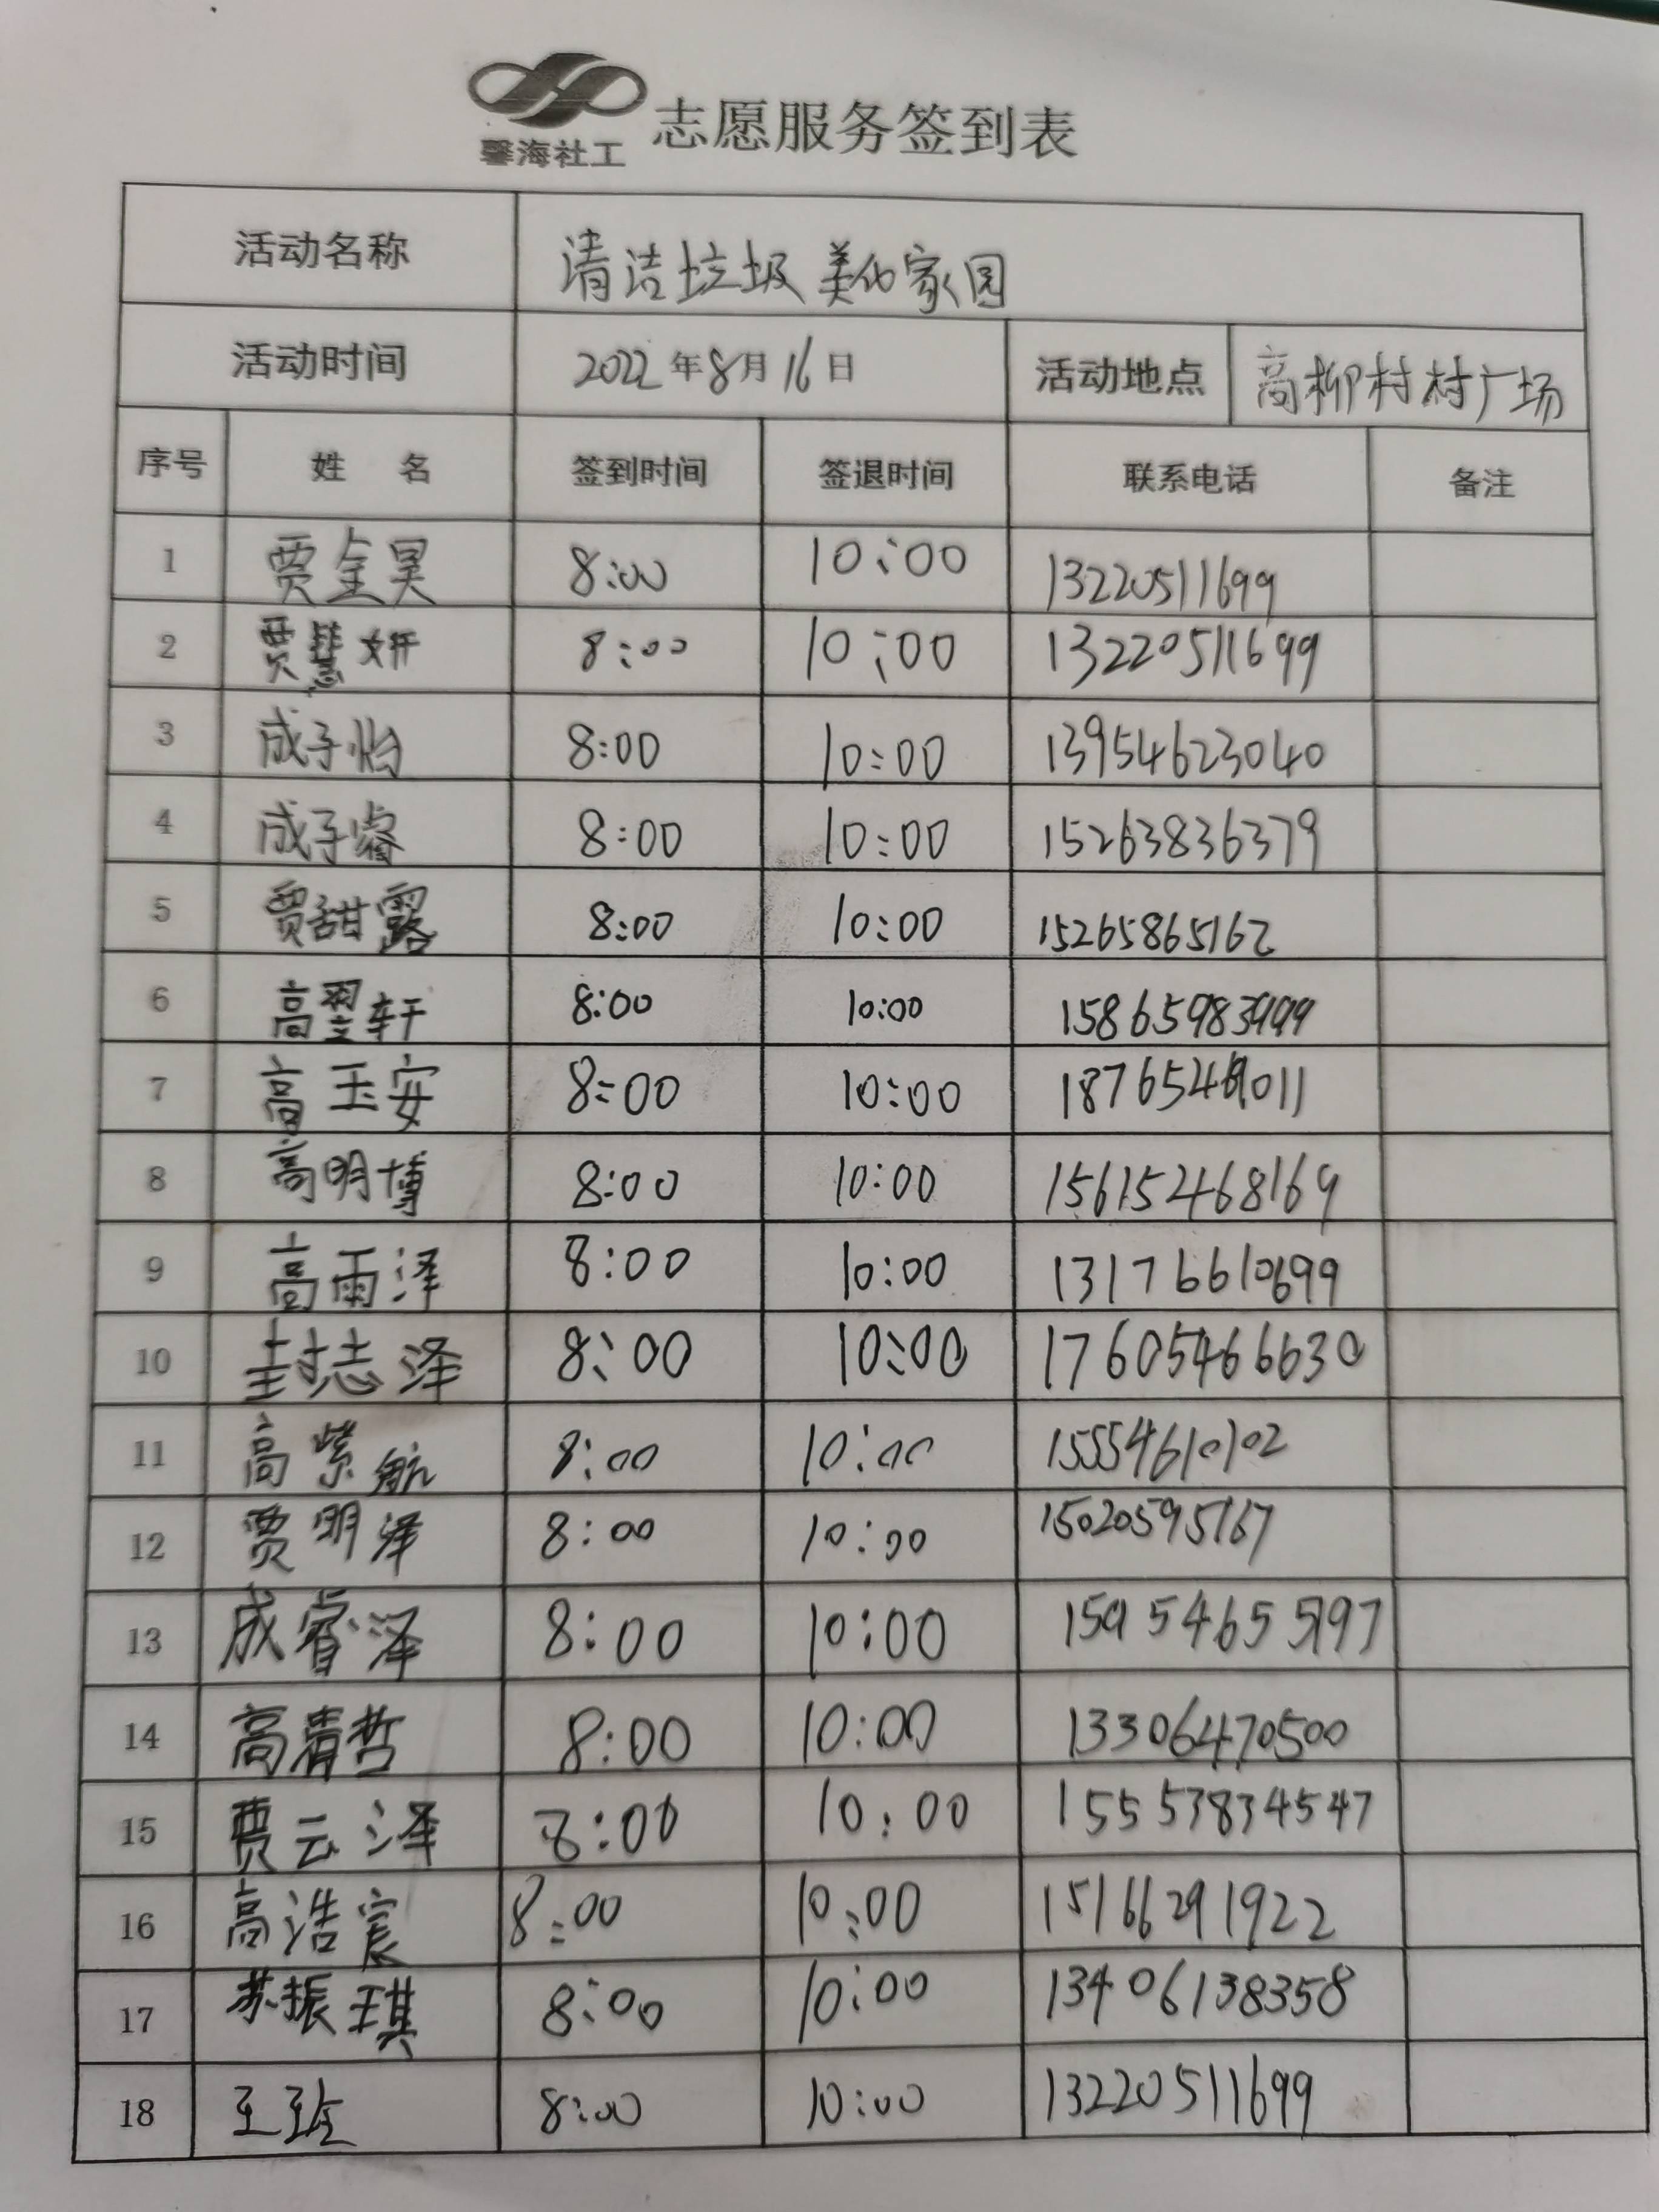 馨海社工 志愿服务签到表
活动名称 清洁垃圾 美化家园
活动时间 2022年8月16日 活动地点 高柳村村广场
序号 姓 名 签到时间 签退时间 联系电话 备注
1 贾金昊 8:00 10:00 13220511699
2 贾慧妍 8:00 10:00 13220511699
3 成子怡 8:00 10:00 13954623040
4 成子睿 8:00 10:00 15263836379
5 贾甜露 8:00 10:00 15265865162
6 高翌轩 8:00 10:00
7 高玉安 8:00 10:00
8 高明博 8:00 10:00 156152468169
9 高雨泽 8:00 10:00 13176610699
10 封志泽 8:00 10:00 17605466630
11 高紫航 8:00 10:00 15554610102
12 贾明泽 8:00 10:00 15020595167
13 成睿泽 8:00 10:00
14 高清哲 8:00 10:00 13306470500
15 贾云泽 8:00 10:00 15553834547
16 高浩宸 8:00 10:00 15166291922
17 苏振琪 8:00 10:00 13406138358
18 王 8:00 10:00 13220511699